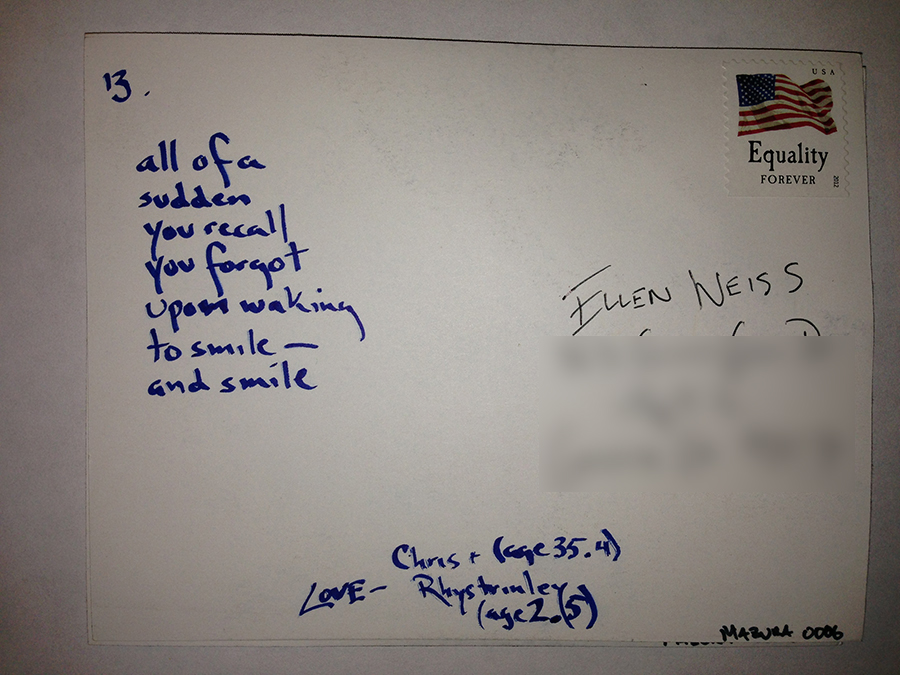 13.
all of a
sudden
you recall
you forgot
upon waking
to smile —
and smile
USA
Equality
FOREVER
2012
ELLEN WEISS
Chris + (age 35.4)
LOVE – Rhystrinley
(age 2.(5)
MAZURA 0006